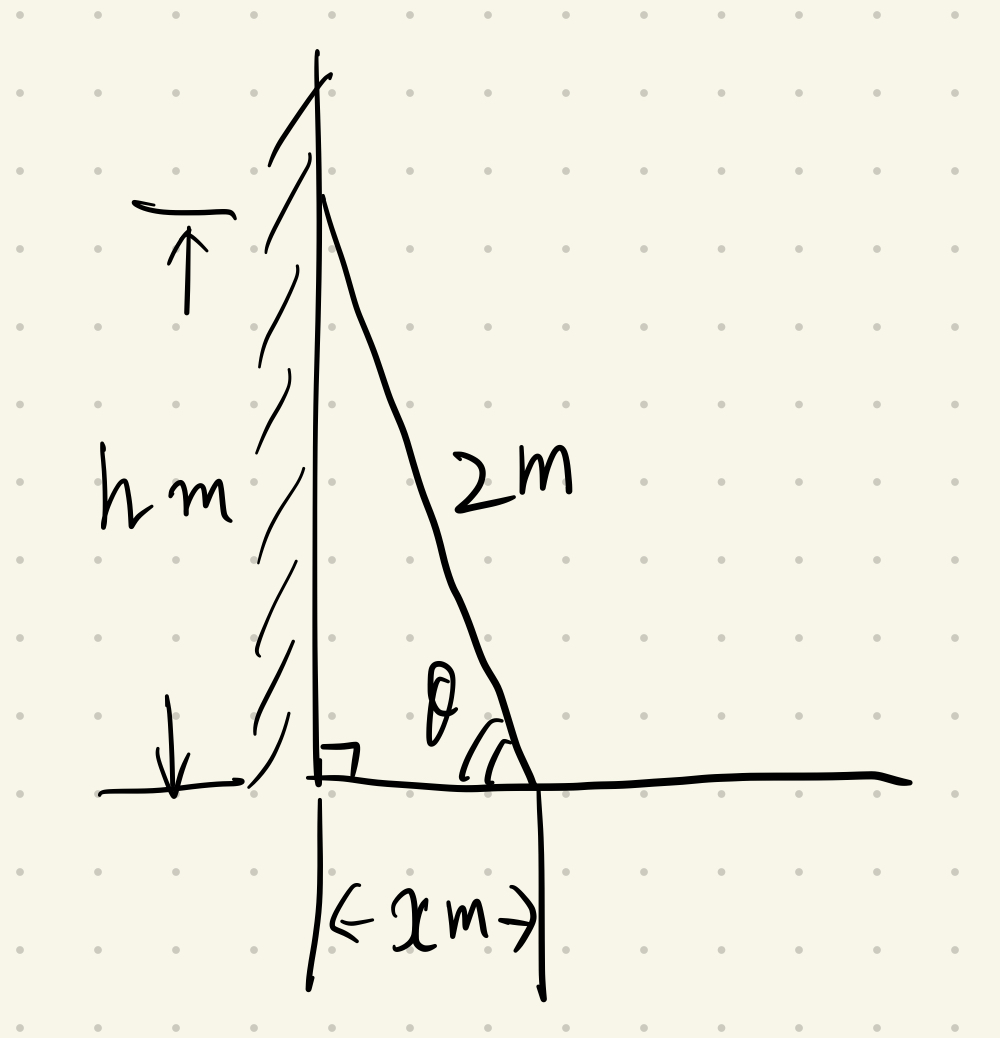 h m
2 m
θ
x m